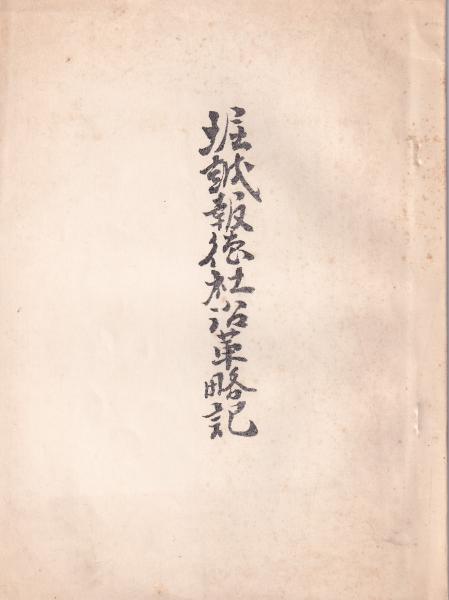 堀誠報徳社沿革略記